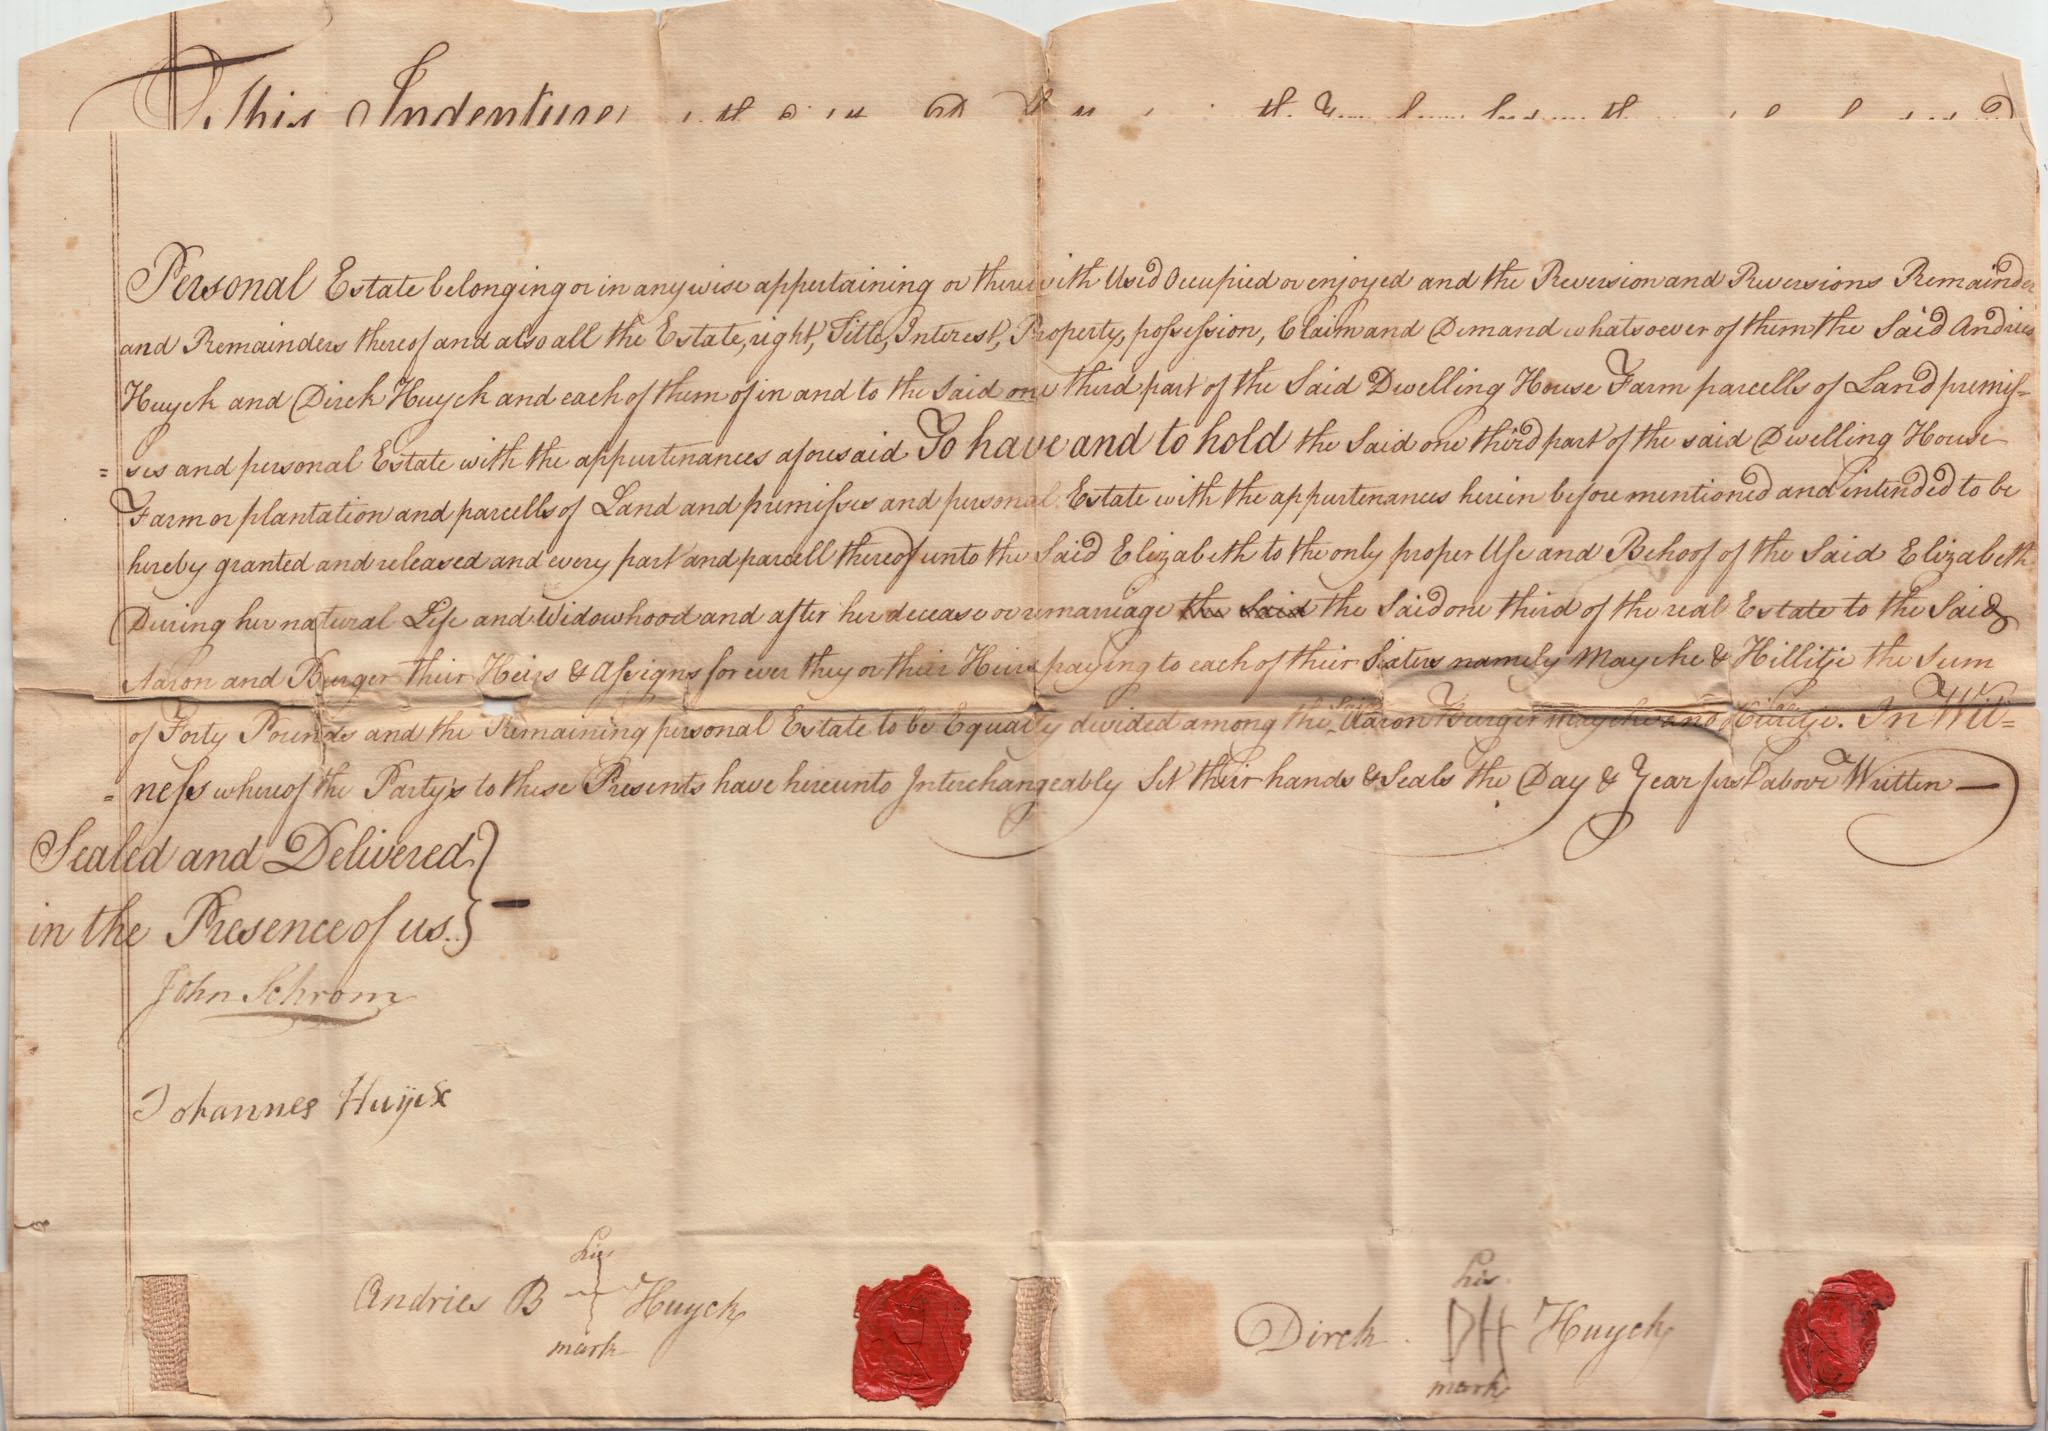 This Indenture
Personal Estate belonging or in any wise appertaining or therewith Used Occupied or enjoyed and the Reversion and Reversions Remainder
and Remainders thereof and also all the Estate, right, Title, Interest, Property, possession, Claim and Demand whatsoever of them the Said Andries
Huyck and Direk Huyck and each of them of in and to the Said one third part of the Said Dwelling House Farm parcells of Land premis-
=ses and personal Estate with the appurtenances aforesaid To have and to hold the Said one third part of the said Dwelling House
Farm or plantation and parcells of Land and premisses and personal Estate with the appurtenances herein before mentioned and intended to be
hereby granted and released and every part and parcell thereof unto the Said Elizabeth to the only proper Use and Behoof of the Said Elizabeth
During her natural Life and Widowhood and after her decease or remarriage the Said the Said one third of the real Estate to the Said
Aaron and Burger their Heirs & Assigns for ever they or their Heirs paying to each of their Sisters namely Mayche & Hillitje the Sum
of Forty Pounds and the Remaining personal Estate to be Equally divided among the Said Aaron Burger Mayche and Hillitje. In Wit-
=ness whereof the Party's to these Presents have hereunto Interchangeably Set their hands & Seals the Day & Year first above Written
Sealed and Delivered
in the Presence of us.
John Schrom
Johannes Huyck
his
Andries B Huyck
mark
his
Direk DH Huyck
mark